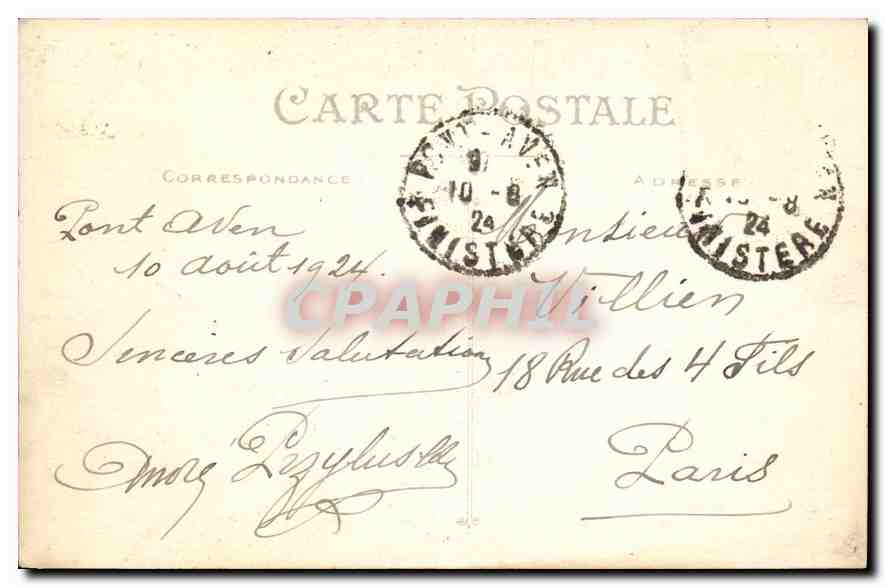 CARTE POSTALE
CORRESPONDANCE
ADRESSE
PONT-AVEN
10 - 8
24
FINISTERE
- 8
24
NISTERE
Pont Aven
10 août 1924.
Sincères Salutations
Monsieur
Villien
18 Rue des 4 Fils
Paris
CPAPHIL